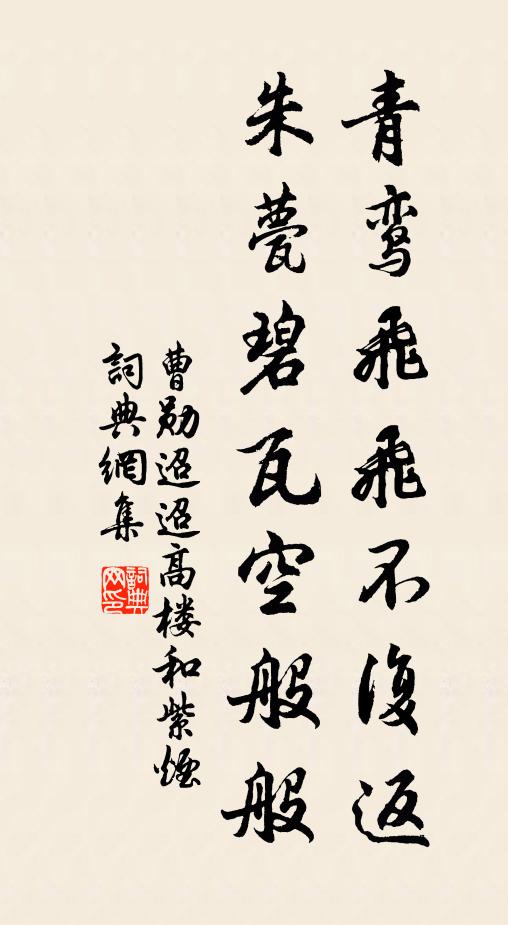 青鸾飛飛不復返
朱甍碧瓦空般般
曹勛迢迢高楼和紫煙
詞典網集
詞典網印